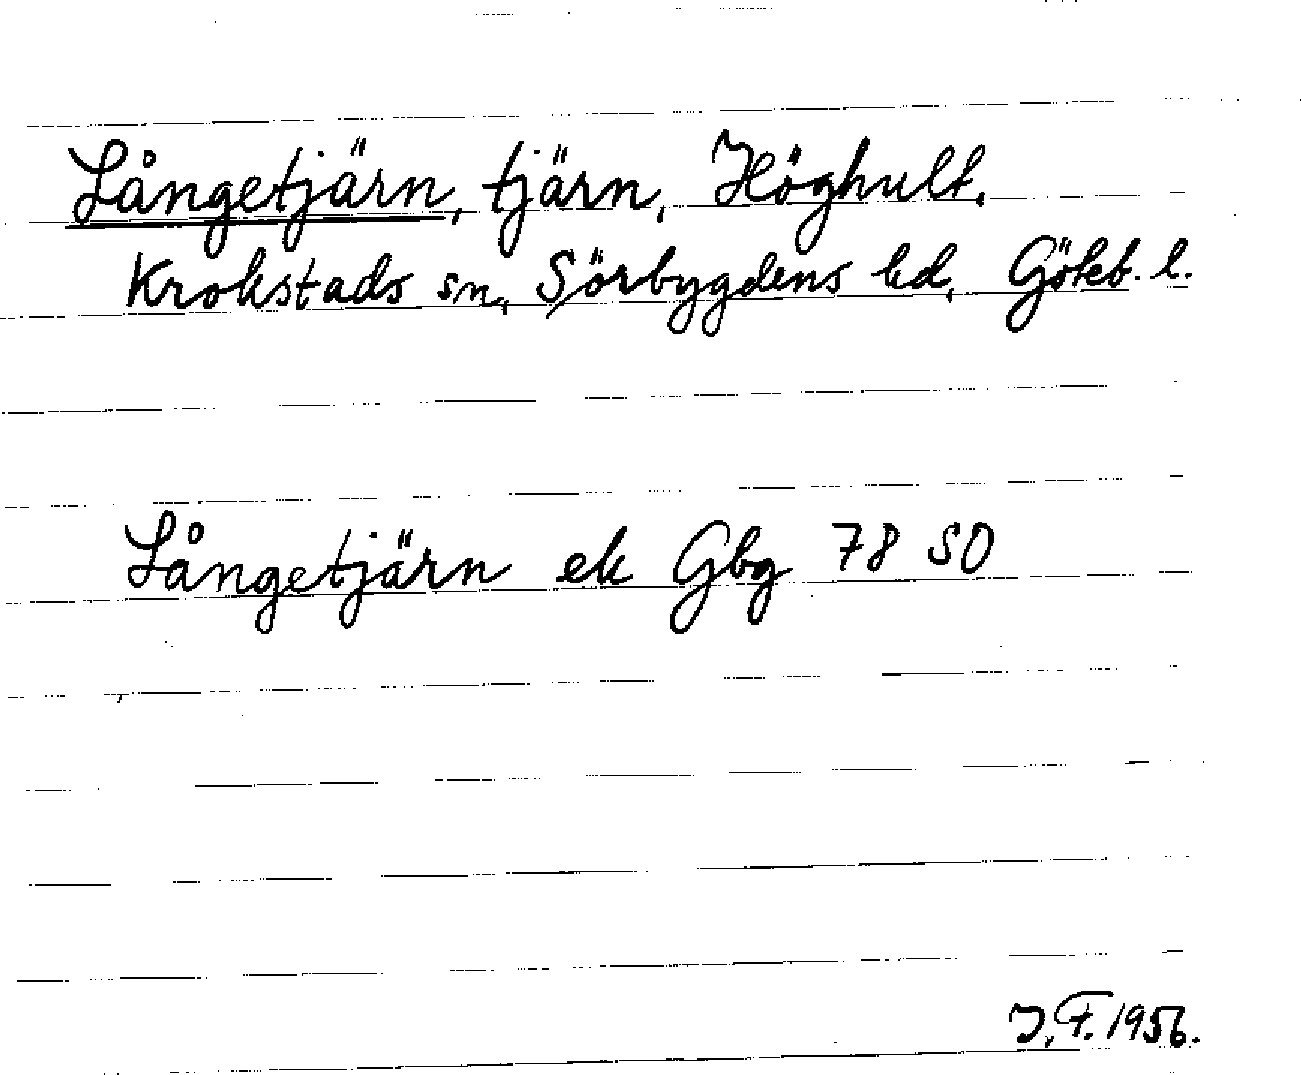 Långetjärn, tjärn, Höghult,
Krokstads sn, Sörbygdens hd, Göteb. l.
Långetjärn ek Gbg 78 SO
J. F. 1956.